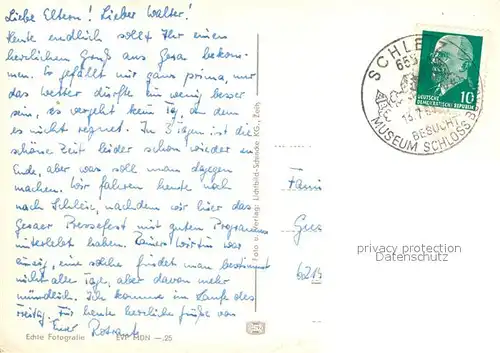 Liebe Eltern! Lieber Walter!
Heute endlich sollt Ihr einen
herzlichen Gruß aus Gera bekom-
men. Es gefällt mir ganz prima, nur
das Wetter dürfte ein wenig besser
sein, es vergeht kein Tag, an dem
es nicht regnet. In 3 Tagen ist die
schöne Zeit leider schon wieder zu
Ende, aber was soll man dagegen
machen. Wir fahren heute noch
nach Schleiz, nachdem wir hier das
Geraer Pressefest mit gutem Programm
miterlebt haben. Wirtin war
einzig, eine solche findet man bestimmt
nicht alle Tage, aber davon mehr
mündlich. Ich komme im Laufe des
Freitag. Für heute herzliche Grüße von
Euer
Echte Fotografie EVP MDN -.25
Foto u. Verlag: Lichtbild-Schincke KG., Zeitz
SCHLEIZ
653
BESUCHT
MUSEUM SCHLOSS
10
DEUTSCHE
DEMOKRATISCHE REPUBLIK
Fami
6213
privacy protection
Datenschutz